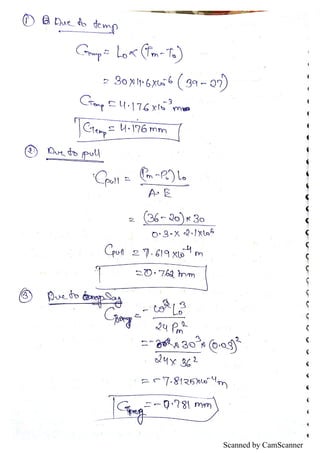 ① Due to temp
Ctemp = L₀ ∝ (Tm - T₀)
= 30 × 11.6 × 10⁻⁶ (39 - 27)
Ctemp = 4.176 × 10⁻³ m
Ctemp = 4.176 mm
② Due to pull
Cpull = (Pm - P₀) L₀
A · E
= (36 - 20) × 30
0.3 × 2.1 × 10⁶
Cpull = 7.619 × 10⁻⁴ m
= 0.762 mm
③ Due to Sag
= - ω² L₀³
24 Pm²
= - 30³ × (0.03)²
24 × 36²
= - 7.8125 × 10⁻⁴ m
= - 0.781 mm
Scanned by CamScanner